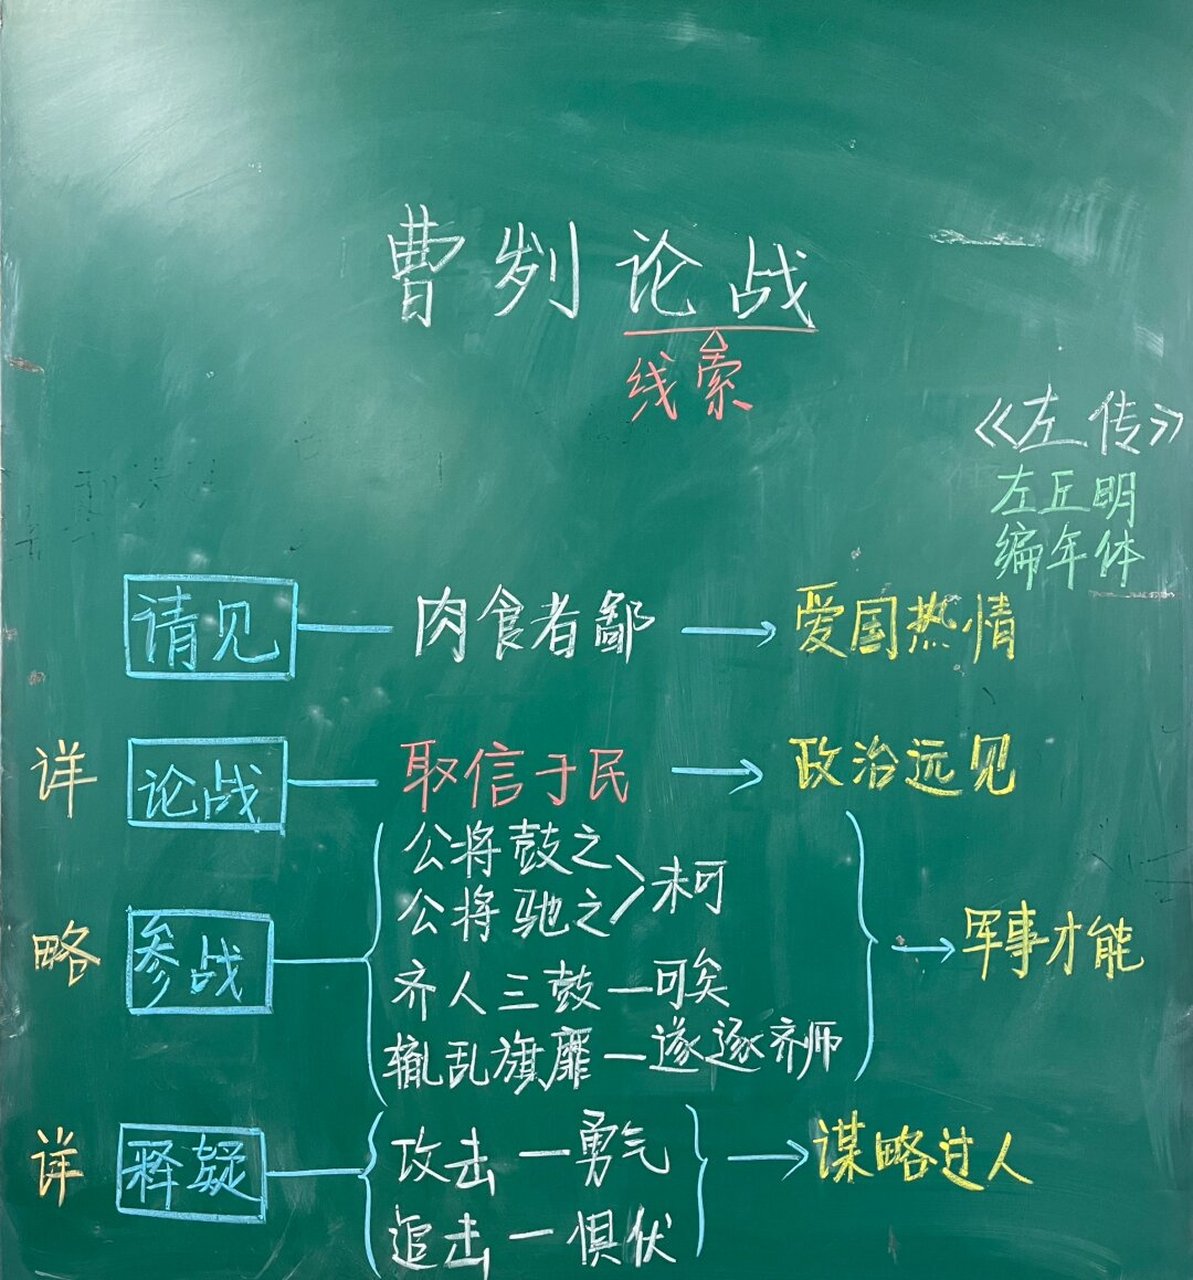 曹刿论战
线索
《左传》
左丘明
编年体
请见 — 肉食者鄙 → 爱国热情
详 论战 — 取信于民 → 政治远见
公将鼓之
公将驰之 > 未可
略 参战 齐人三鼓 — 可矣 → 军事才能
辙乱旗靡 — 遂逐齐师
详 释疑 攻击 — 勇气 → 谋略过人
追击 — 惧伏